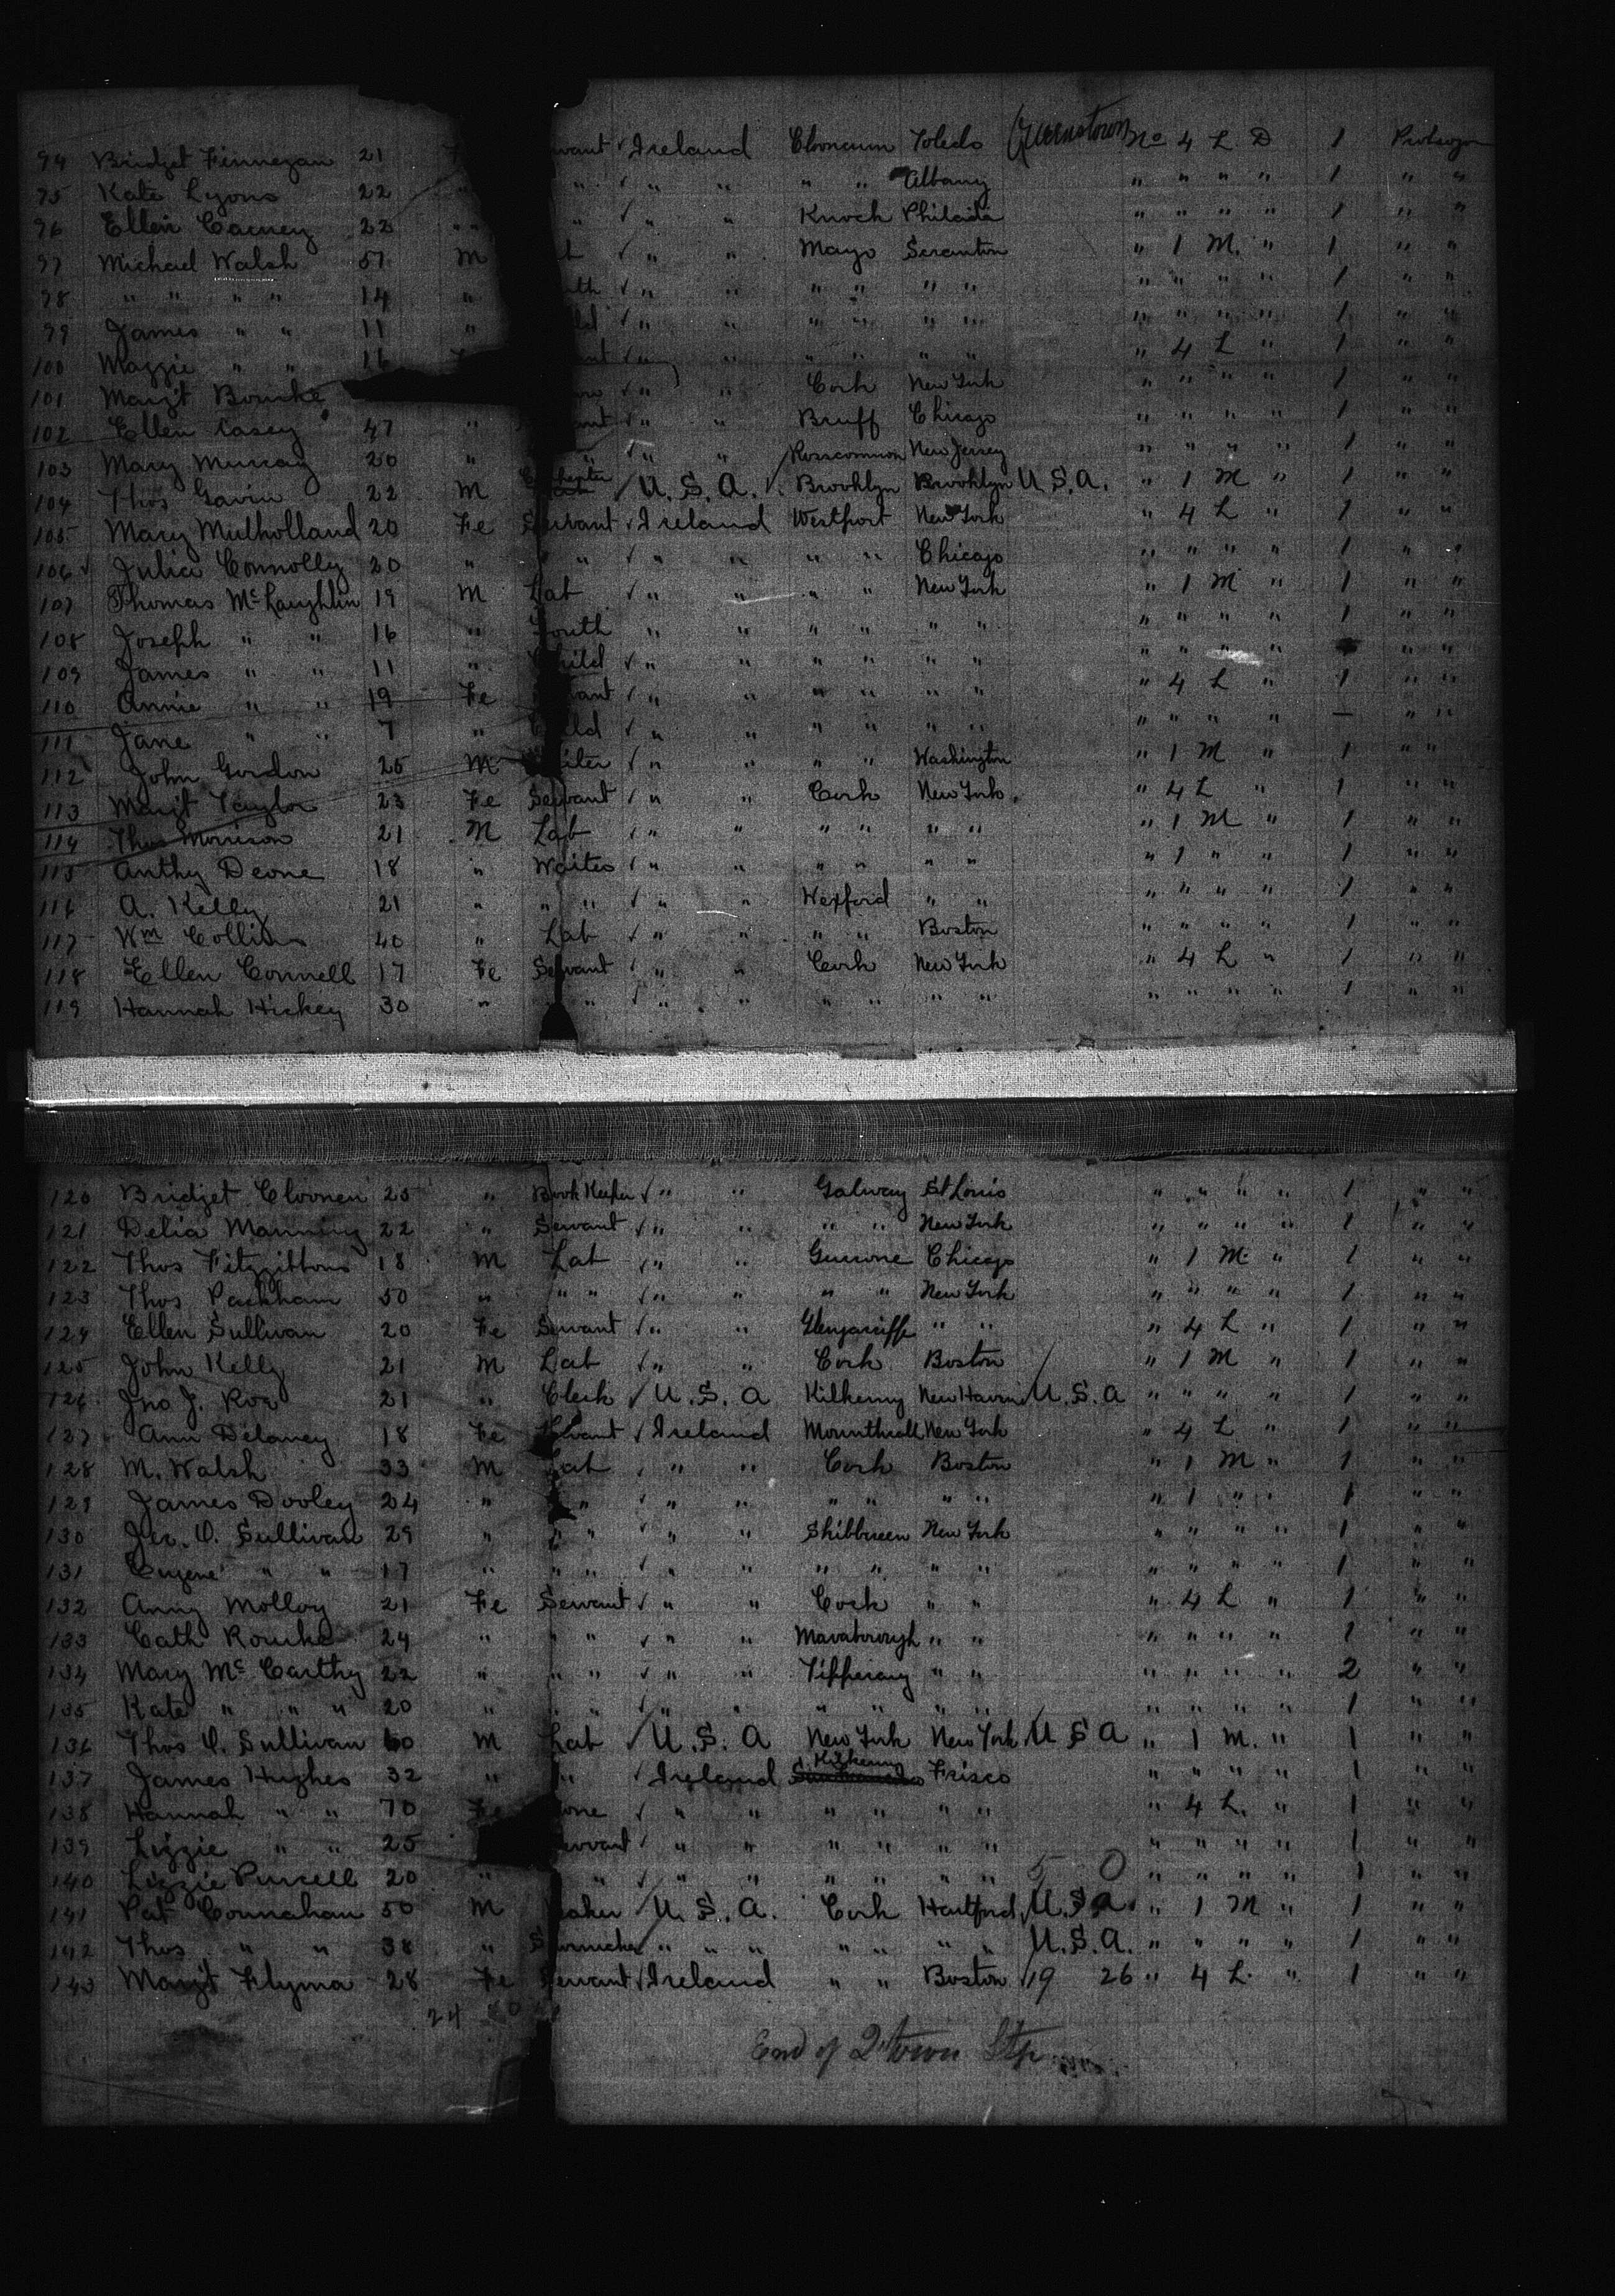 94 Bridget Finnegan 21 F vant Ireland Clooncun Toledo Queenstown No 4 L D 1
95 Kate Lyons 22 " " " " " " Albany " " " " 1 " "
96 Ellen Carney 22 " " " " " Knock Philada " " " " 1 " "
97 Michael Walsh 51 M b " " Mayo Scranton " 1 M. " 1 " "
98 " " " " 14 " uth " " " " " " " " " " 1 " "
99 James " " 11 " ld " " " " " " " " " " 1 " "
100 Maggie " " 16 ant " " " " " " " 4 L " 1 " "
101 Margt Bourke " " Cork New York " " " " 1 " "
102 Ellen Casey 47 " ant " " Bruff Chicago " " " " 1 " "
103 Mary Murray 20 " " " " Roscommon New Jersey " " " " 1 " "
104 Thos Gavin 22 M U.S.A. Brooklyn Brooklyn U.S.A. " 1 M " 1 " "
105 Mary Mulholland 20 Fe Servant Ireland Westport New York " 4 L " 1 " "
106 Julia Connolly 20 " " " " " " " Chicago " " " " 1 " "
107 Thomas McLaughlin 19 M Lab " " " " New York " 1 M " 1 " "
108 Joseph " " 16 " Youth " " " " " " " " " " 1 " "
109 James " " 11 " Child " " " " " " " " " " " "
110 Annie " " 19 Fe vant " " " " " " " 4 L " 1 " "
111 Jane " " 7 " Child " " " " " " " " " " — " "
112 John Gordon 25 M aiter " " " " Washington " 1 M " 1 " "
113 Margt Taylor 23 Fe Servant " " Cork New York " 4 L " 1 " "
114 Thos Morrison 21 M Lab " " " " " " " 1 M " 1 " "
115 Anthy Deone 18 " Waiter " " " " " " " 1 " " 1 " "
116 A. Kelly 21 " " " " " Wexford " " " " " " 1 " "
117 Wm Collins 40 " Lab " " " " Boston " " " " 1 " "
118 Ellen Connell 17 Fe Servant " " Cork New York " 4 L " 1 " "
119 Hannah Hickey 30 " " " " " " " " " " " " 1 " "
120 Bridget Cloonen 25 " Book Keeper " " Galway St Louis " " " " 1 " "
121 Delia Manning 22 " Servant " " " " New York " " " " 1 " "
122 Thos Fitzgibbons 18 M Lab " " Chicago " 1 M " 1 " "
123 Thos Packham 50 " " " " " " " New York " " " " 1 " "
124 Ellen Sullivan 20 Fe Servant " " Glengariffe " " " 4 L " 1 " "
125 John Kelly 21 M Lab " " Cork Boston " 1 M " 1 " "
126 Jno J. Roe 21 " Clerk U.S.A Kilkenny New Haven U.S.A " " " " 1 " "
127 Ann Delaney 18 Fe Servant Ireland Mountrath New York " 4 L " 1 " "
128 M. Walsh 33 M Lab " " Cork Boston " 1 M " 1 " "
129 James Dooley 24 " " " " " " " " " 1 " " 1 " "
130 Jer. O. Sullivan 29 " " " " " Skibbreen New York " " " " 1 " "
131 Eugene " " 17 " " " " " " " " " " " " " 1 " "
132 Anny Molloy 21 Fe Servant " " Cork " " " 4 L " 1 " "
133 Cath Rourke 24 " " " " " " " " " " " 1 " "
134 Mary McCarthy 22 " " " " " Tipperary " " " " " " 2 " "
135 Kate " " " 20 " " " " " " " " " " " " " 1 " "
136 Thos O. Sullivan 60 M Lab U.S.A New York New York U S A " 1 M. " 1 " "
137 James Hughes 32 " " Ireland Kilkenny Frisco " " " " 1 " "
138 Hannah " " 70 Fe one " " " " " " " 4 L. " 1 " "
139 Lizzie " " 25 ervant " " " " " " " " " " 1 " "
140 Lizzie Purcell 20 " " " " " " " " 5 0 " " " " 1 " "
141 Pat Counahan 50 M U.S.A. Cork Hartford U.S.A. " 1 M " 1 " "
142 Thos " " 38 " " " " " " " " U.S.A. " " " " 1 " "
143 Margt Flyma 28 Fe Servant Ireland " " Boston 19 26 " 4 L " 1 " "
24
End of Q'town Stp